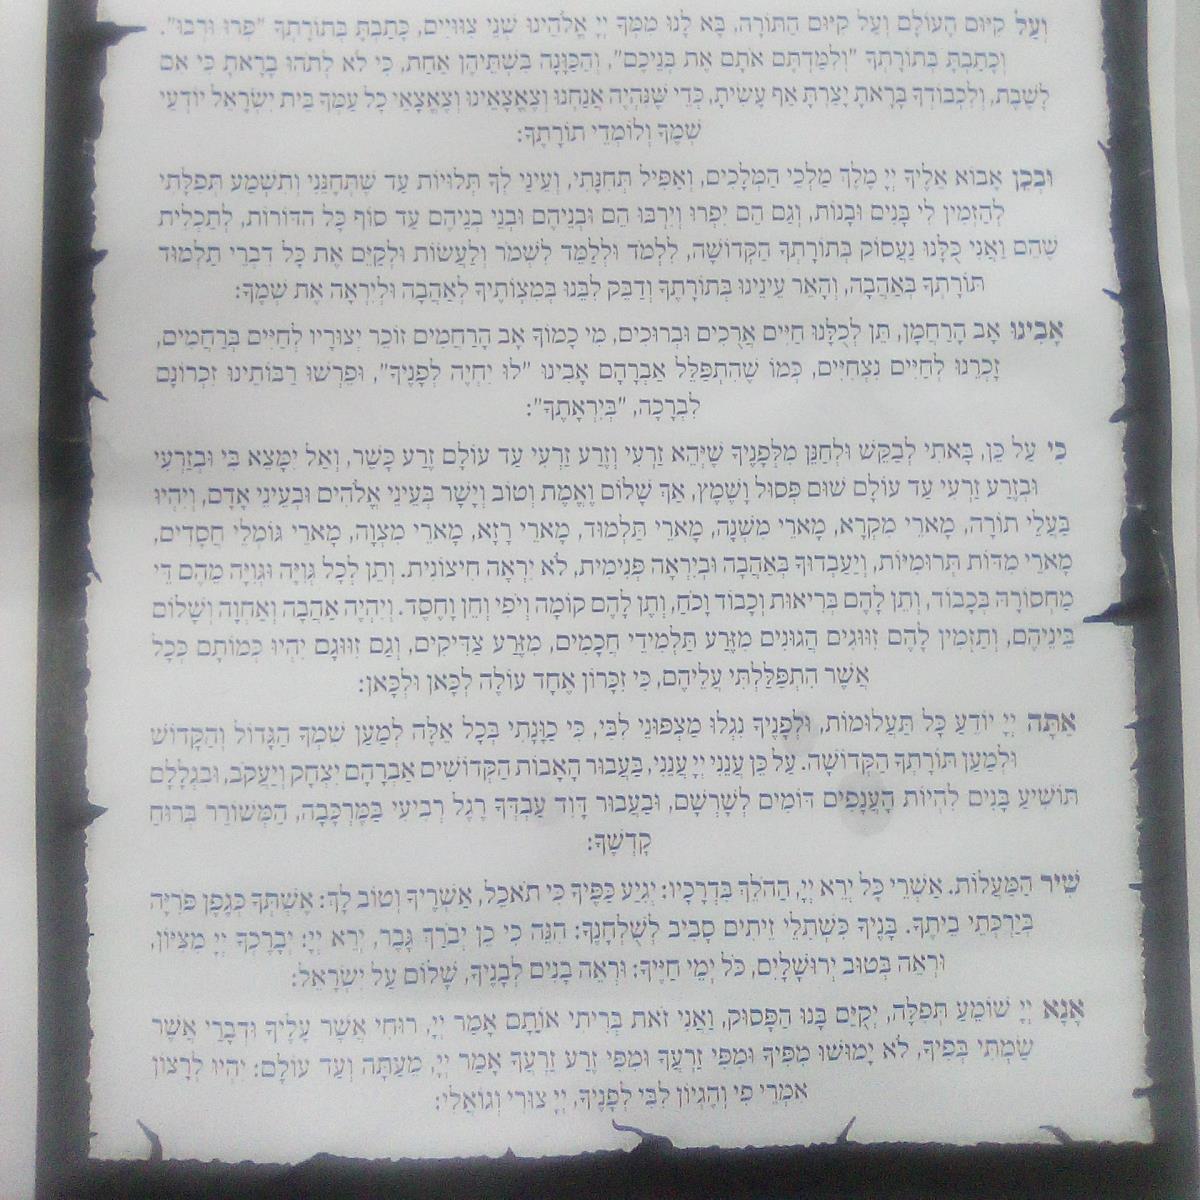 וְעַל קִיּוּם הָעוֹלָם וְעַל קִיּוּם הַתּוֹרָה, בָּא לָנוּ מִמְּךָ יְיָ אֱלֹהֵינוּ שְׁנֵי צִוּוּיִים, כָּתַבְתָּ בְּתוֹרָתְךָ "פְּרוּ וּרְבוּ".
וְכָתַבְתָּ בְּתוֹרָתְךָ "וְלִמַּדְתֶּם אֹתָם אֶת בְּנֵיכֶם", וְהַכַּוָּנָה בִּשְׁתֵּיהֶן אַחַת, כִּי לֹא לְתֹהוּ בָרָאתָ כִּי אִם
לָשֶׁבֶת, וְלִכְבוֹדְךָ בָּרָאתָ יָצַרְתָּ אַף עָשִׂיתָ, כְּדֵי שֶׁנִּהְיֶה אֲנַחְנוּ וְצֶאֱצָאֵינוּ וְצֶאֱצָאֵי כָּל עַמְּךָ בֵּית יִשְׂרָאֵל יוֹדְעֵי
שְׁמֶךָ וְלוֹמְדֵי תוֹרָתֶךָ:
וּבְכֵן אָבוֹא אֵלֶיךָ יְיָ מֶלֶךְ מַלְכֵי הַמְּלָכִים, וְאַפִּיל תְּחִנָּתִי, וְעֵינַי לְךָ תְּלוּיוֹת עַד שֶׁתְּחָנֵּנִי וְתִשְׁמַע תְּפִלָּתִי
לְהַזְמִין לִי בָּנִים וּבָנוֹת, וְגַם הֵם יִפְרוּ וְיִרְבּוּ הֵם וּבְנֵיהֶם וּבְנֵי בְנֵיהֶם עַד סוֹף כָּל הַדּוֹרוֹת, לְתַכְלִית
שֶׁהֵם וַאֲנִי כֻּלָּנוּ נַעֲסוֹק בְּתוֹרָתְךָ הַקְּדוֹשָׁה, לִלְמֹד וּלְלַמֵּד לִשְׁמֹר וְלַעֲשׂוֹת וּלְקַיֵּם אֶת כָּל דִּבְרֵי תַלְמוּד
תּוֹרָתְךָ בְּאַהֲבָה, וְהָאֵר עֵינֵינוּ בְּתוֹרָתֶךָ וְדַבֵּק לִבֵּנוּ בְּמִצְוֹתֶיךָ לְאַהֲבָה וּלְיִרְאָה אֶת שְׁמֶךָ:
אָבִינוּ אָב הָרַחֲמָן, תֵּן לְכֻלָּנוּ חַיִּים אֲרֻכִּים וּבְרוּכִים, מִי כָמוֹךָ אָב הָרַחֲמִים זוֹכֵר יְצוּרָיו לְחַיִּים בְּרַחֲמִים,
זָכְרֵנוּ לְחַיִּים נִצְחִיִּים, כְּמוֹ שֶׁהִתְפַּלֵּל אַבְרָהָם אָבִינוּ "לוּ יִחְיֶה לְפָנֶיךָ", וּפֵרְשׁוּ רַבּוֹתֵינוּ זִכְרוֹנָם
לִבְרָכָה, "בְּיִרְאָתֶךָ":
כִּי עַל כֵּן, בָּאתִי לְבַקֵּשׁ וּלְחַנֵּן מִלְּפָנֶיךָ שֶׁיְּהֵא זַרְעִי וְזֶרַע זַרְעִי עַד עוֹלָם זֶרַע כָּשֵׁר, וְאַל יִמָּצֵא בִּי וּבְזַרְעִי
וּבְזֶרַע זַרְעִי עַד עוֹלָם שׁוּם פְּסוּל וָשֶׁמֶץ, אַךְ שָׁלוֹם וֶאֱמֶת וְטוֹב וְיָשָׁר בְּעֵינֵי אֱלֹהִים וּבְעֵינֵי אָדָם, וְיִהְיוּ
בַּעֲלֵי תוֹרָה, מָארֵי מִקְרָא, מָארֵי מִשְׁנָה, מָארֵי תַּלְמוּד, מָארֵי רָזָא, מָארֵי מִצְוָה, מָארֵי גּוֹמְלֵי חֲסָדִים,
מָארֵי מִדּוֹת תְּרוּמִיּוֹת, וְיַעַבְדוּךָ בְּאַהֲבָה וּבְיִרְאָה פְּנִימִית, לֹא יִרְאָה חִיצוֹנִית. וְתֵן לְכָל גְּוִיָּה וּגְוִיָּה מֵהֶם דֵּי
מַחְסוֹרָהּ בְּכָבוֹד, וְתֵן לָהֶם בְּרִיאוּת וְכָבוֹד וָכֹחַ, וְתֵן לָהֶם קוֹמָה וְיֹפִי וְחֵן וָחֶסֶד. וְיִהְיֶה אַהֲבָה וְאַחֲוָה וְשָׁלוֹם
בֵּינֵיהֶם, וְתַזְמִין לָהֶם זִוּוּגִים הֲגוּנִים מִזֶּרַע תַּלְמִידֵי חֲכָמִים, מִזֶּרַע צַדִּיקִים, וְגַם זִוּוּגָם יִהְיוּ כְּמוֹתָם כְּכָל
אֲשֶׁר הִתְפַּלַּלְתִּי עֲלֵיהֶם, כִּי זִכָּרוֹן אֶחָד עוֹלֶה לְכָאן וּלְכָאן:
אַתָּה יְיָ יוֹדֵעַ כָּל תַּעֲלוּמוֹת, וּלְפָנֶיךָ נִגְלוּ מַצְפּוּנֵי לִבִּי, כִּי כַוָּנָתִי בְּכָל אֵלֶּה לְמַעַן שִׁמְךָ הַגָּדוֹל וְהַקָּדוֹשׁ
וּלְמַעַן תּוֹרָתְךָ הַקְּדוֹשָׁה. עַל כֵּן עֲנֵנִי יְיָ עֲנֵנִי, בַּעֲבוּר הָאָבוֹת הַקְּדוֹשִׁים אַבְרָהָם יִצְחָק וְיַעֲקֹב, וּבִגְלָלָם
תּוֹשִׁיעַ בָּנִים לִהְיוֹת הָעֲנָפִים דּוֹמִים לְשָׁרְשָׁם, וּבַעֲבוּר דָּוִד עַבְדְּךָ רֶגֶל רְבִיעִי בַּמֶּרְכָּבָה, הַמְשׁוֹרֵר בְּרוּחַ
קָדְשֶׁךָ:
שִׁיר הַמַּעֲלוֹת. אַשְׁרֵי כָּל יְרֵא יְיָ, הַהֹלֵךְ בִּדְרָכָיו: יְגִיעַ כַּפֶּיךָ כִּי תֹאכֵל, אַשְׁרֶיךָ וְטוֹב לָךְ: אֶשְׁתְּךָ כְּגֶפֶן פֹּרִיָּה
בְּיַרְכְּתֵי בֵיתֶךָ. בָּנֶיךָ כִּשְׁתִלֵי זֵיתִים סָבִיב לְשֻׁלְחָנֶךָ: הִנֵּה כִי כֵן יְבֹרַךְ גָּבֶר, יְרֵא יְיָ: יְבָרֶכְךָ יְיָ מִצִּיּוֹן,
וּרְאֵה בְּטוּב יְרוּשָׁלָיִם, כֹּל יְמֵי חַיֶּיךָ: וּרְאֵה בָנִים לְבָנֶיךָ, שָׁלוֹם עַל יִשְׂרָאֵל:
אָנָא יְיָ שׁוֹמֵעַ תְּפִלָּה, יְקֻיַּם בָּנוּ הַפָּסוּק, וַאֲנִי זֹאת בְּרִיתִי אוֹתָם אָמַר יְיָ, רוּחִי אֲשֶׁר עָלֶיךָ וּדְבָרַי אֲשֶׁר
שַׂמְתִּי בְּפִיךָ, לֹא יָמוּשׁוּ מִפִּיךָ וּמִפִּי זַרְעֲךָ וּמִפִּי זֶרַע זַרְעֲךָ אָמַר יְיָ, מֵעַתָּה וְעַד עוֹלָם: יִהְיוּ לְרָצוֹן
אִמְרֵי פִי וְהֶגְיוֹן לִבִּי לְפָנֶיךָ, יְיָ צוּרִי וְגוֹאֲלִי: